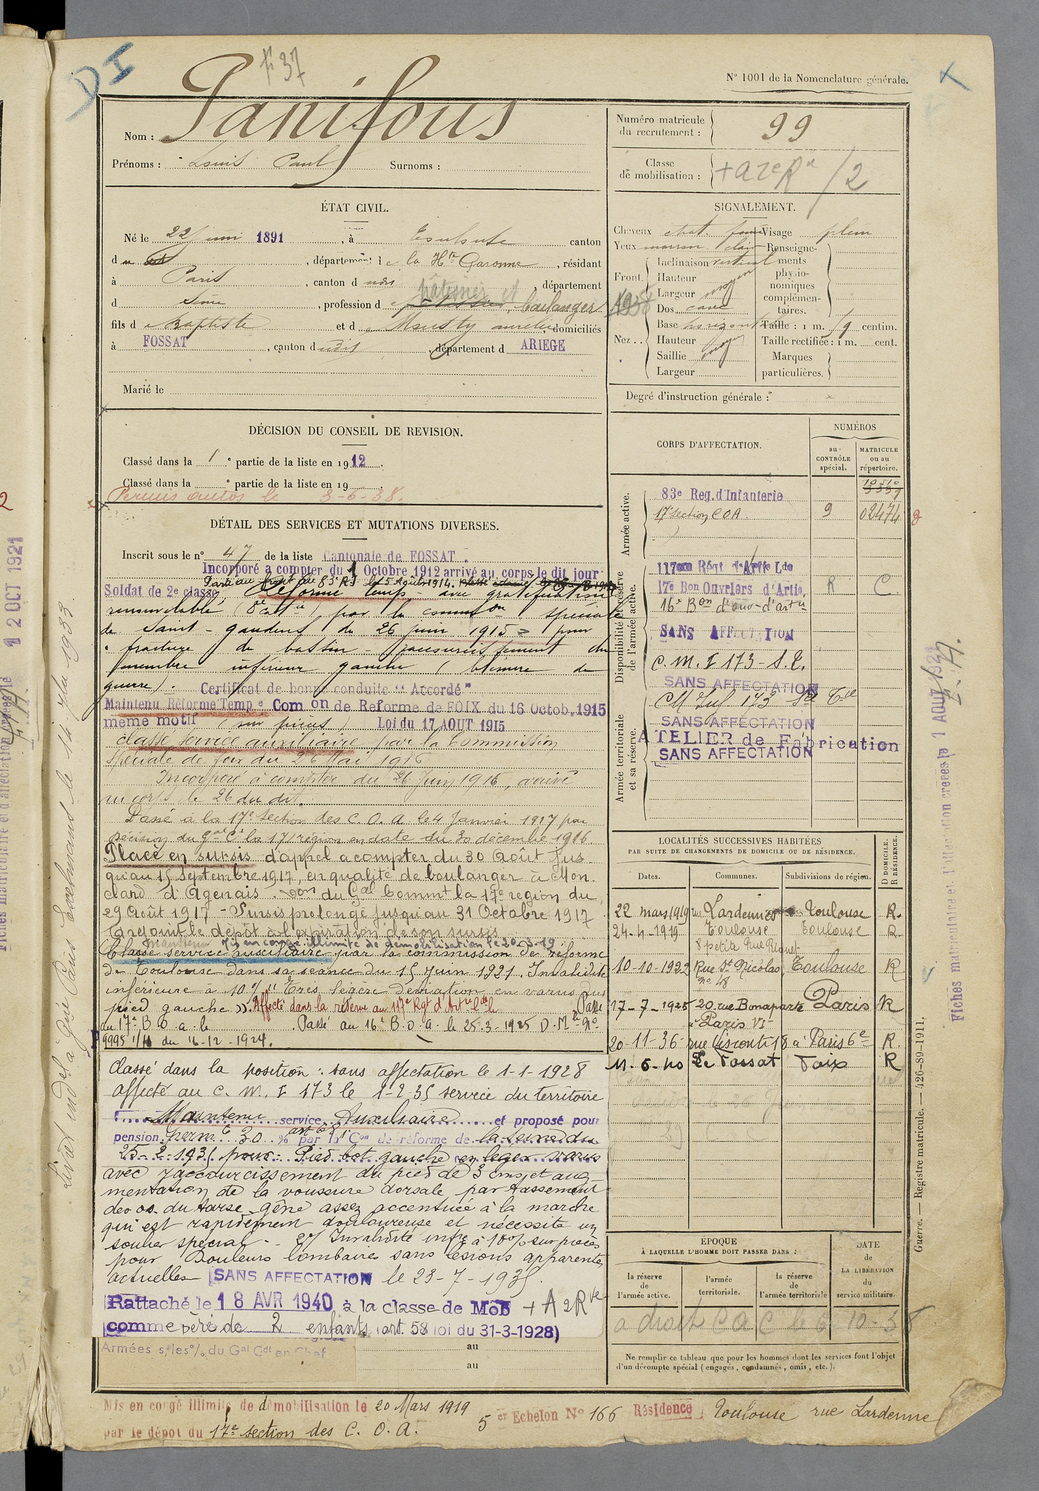 DI
Fº 37
N° 1001 de la Nomenclature générale.
Nom : Panifous
Prénoms : Louis Paul Surnoms :
Numéro matricule du recrutement : 99
Classe de mobilisation :
ÉTAT CIVIL.
Né le 22 1891, à canton
d , département de la Hte Garonne, résidant
à Paris, canton d udit, département
d Seine, profession d boulanger
fils d e Baptiste et d domiciliés
à FOSSAT, canton dudit, département d ARIEGE
Marié le
SIGNALEMENT.
Cheveux chat. Visage plein
Yeux marron clair Renseigne-
Front. Inclinaison vertical ments
Hauteur moyen physio-
Largeur nomiques
Dos cave complémen-
taires.
Nez. Base horizontal Taille : 1 m. centim.
Hauteur moyen Taille rectifiée : 1 m. cent.
Saillie Marques
Largeur particulières.
Degré d'instruction générale :
DÉCISION DU CONSEIL DE REVISION.
Classé dans la 1e partie de la liste en 1912.
Classé dans la e partie de la liste en 19
Permis autos le 3-6-38.
DÉTAIL DES SERVICES ET MUTATIONS DIVERSES.
Inscrit sous le n° 47 de la liste Cantonale de FOSSAT.
Incorporé à compter du 1 Octobre 1912 arrivé au corps le dit jour
Soldat de 2e classe, Réformé temp. avec gratification
renouvelable par la common spéciale
de Saint-Gaudens du 26 juin 1915 pour
fracture de bassin - raccourcissement du
membre inférieur gauche (blessure de
guerre). Certificat de bonne conduite "Accordé"
Maintenu Réformé Temp e Com on de Reforme de FOIX du 16 Octob. 1915
meme motif (sur pièces) Loi du 17 AOUT 1915
classé service auxiliaire par la Commission
spéciale de Foix du 26 Mai 1916
Incorporé à compter du 26 Juin 1916, arrivé
au corps le 26 du dit.
Passé à la 17e Section des C.O.A le 4 Janvier 1917 par
décision du Gal Ct la 17e région en date du 30 décembre 1916
Placé en sursis d'appel à compter du 30 Août jus
qu'au 15 septembre 1917, en qualité de boulanger à Mon
clard d'Agenais. Don du Gal Commt la 17e région du
29 Août 1917 - Sursis prolongé jusqu'au 31 Octobre 1917
a rejoint le dépôt à l'expiration de son sursis
Mis en congé illimité de démobilisation le 20-3-19
Classé service auxiliaire par la commission de réforme
de Toulouse dans sa séance du 15 Juin 1921. Invalidité
inférieure à 10% "Très légère déviation en varus du
pied gauche". Affecté dans la réserve au 117e Rgt d'Artie Lde le
Passé
au 17e B.O.A. le Passé au 16e B.O.A. le 25-3-1925 D.M. n°
9995 1/10 du 16-12-1924.
Classé dans la position : sans affectation le 1-1-1928
affecté au C.M.I 173 le 1-2-35 service du territoire
Maintenu service Auxiliaire et proposé pour
pension Perm. 30 % par la Con de réforme de la Seine du
25-2-1935 pour : Pied bot gauche en léger varus
avec raccourcissement du pied de 3 cms et aug-
mentation de la voussure dorsale par tassement
des os du tarse gêne assez accentuée à la marche
qui est rapidement douloureuse et nécessite un
soulier spécial - 2° Invalidité infre à 10% sur pièces
pour Douleurs lombaires sans lésions apparentes
actuelles SANS AFFECTATION le 23-7-1935.
Rattaché le 18 AVR 1940 à la classe de Mob
comme père de 2 enfants (art. 58 loi du 31-3-1928)
Armées s/les % du Gal Cdt en Chef
au
au
CORPS D'AFFECTATION.
NUMÉROS
au CONTRÔLE spécial.
MATRICULE ou au répertoire.
Armée active.
83e Reg. d'Infanterie
17e section COA 9 02474
Disponibilité et réserve de l'armée active.
117eme Régt d'Artie Lde
17e Bon Ouvriers d'Artie. R C
16e Bon d'ouv. d'artie
SANS AFFECTATION
C.M.I 173 - S.E.
SANS AFFECTATION
Armée territoriale et sa réserve.
SANS AFFECTATION
ATELIER de Fabrication
SANS AFFECTATION
LOCALITÉS SUCCESSIVES HABITÉES
PAR SUITE DE CHANGEMENTS DE DOMICILE OU DE RÉSIDENCE.
Dates. Communes. Subdivisions de région. D DOMICILE. R RÉSIDENCE.
22 mars 1919 rue Lardenne Toulouse R.
24-4-1919 Toulouse R.
8 petite Rue Riquet
10-10-1922 Rue St Nicolas Toulouse R
n° 48
17-7-1925 20 rue Bonaparte Paris R
à Paris VI
20-11-36 rue Visconti 18 à Paris 6e R.
11-6-40 Le Fossat Foix R
ÉPOQUE
À LAQUELLE L'HOMME DOIT PASSER DANS :
DATE DE LA LIBÉRATION du service militaire.
la réserve de l'armée active.
l'armée territoriale.
la réserve de l'armée territoriale
a droit C a C le 6-10-38
Ne remplir ce tableau que pour les hommes dont les services font l'objet
d'un décompte spécial (engagés, condamnés, omis, etc.).
Mis en congé illimité de démobilisation le 20 Mars 1919
5 er Echelon N° 166 Résidence : Toulouse rue Lardenne
par le dépôt du 17e section des C.O.A.
Guerre. — Registre matricule. — 426-89-1911.
12 OCT 1921